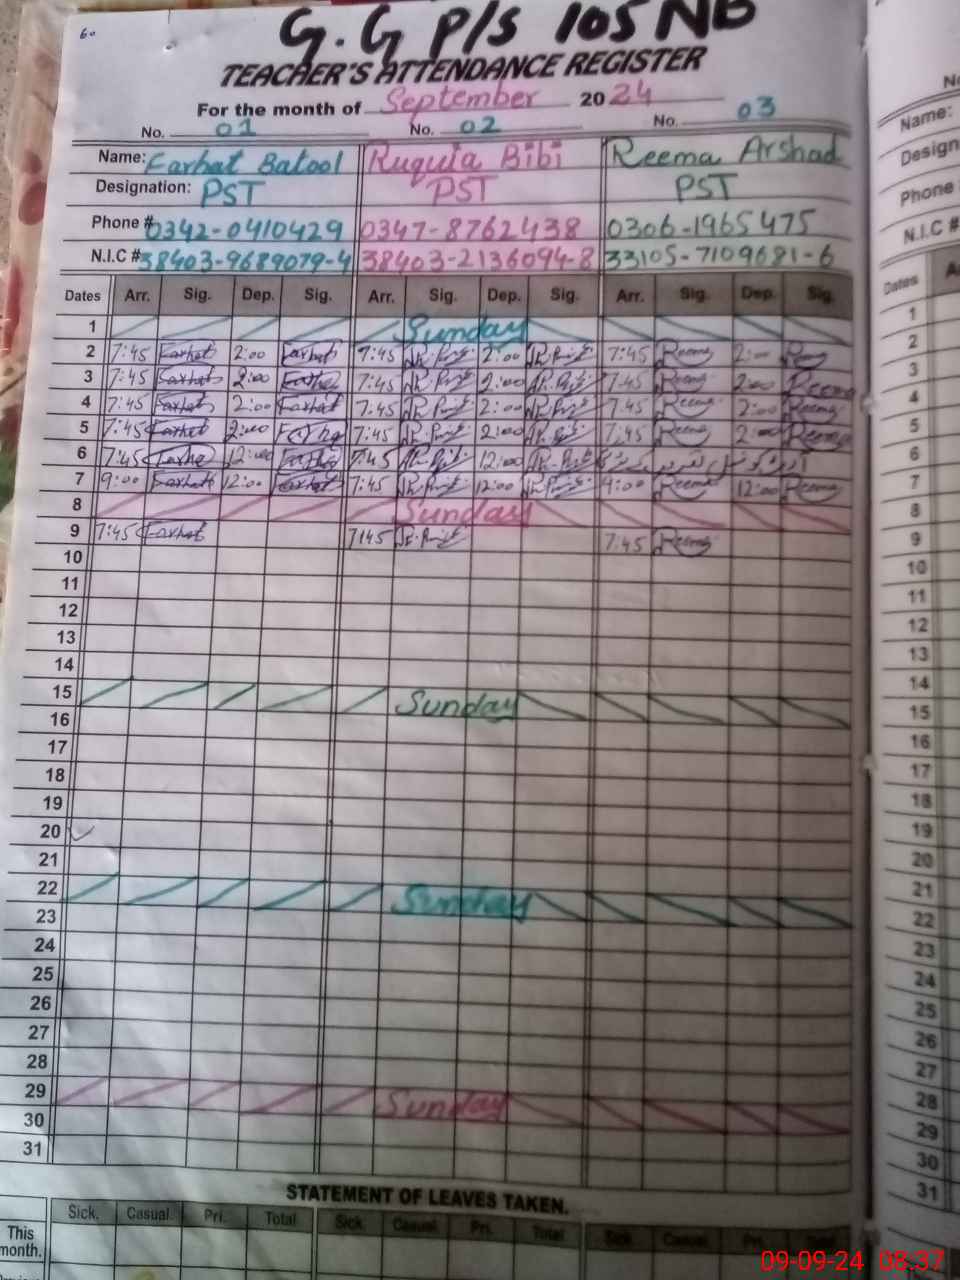 60
G.G P/S 105 NB
TEACHER'S ATTENDANCE REGISTER
For the month of September 2024
No. 01 No. 02 No. 03
Name: Farhat Batool Ruquia Bibi Reema Arshad
Designation: PST PST PST
Phone # 0342-0410429 0347-8762438 0306-1965475
N.I.C # 38403-9689079-4 38403-2136094-8 33105-7109681-6
Dates Arr. Sig. Dep. Sig. Arr. Sig. Dep. Sig. Arr. Sig. Dep. Sig.
1 Sunday
2 7:45 Farhat 2:00 Farhat 7:45 2:00 7:45 Reema 2:00 Reema
3 7:45 Farhat 2:00 Farhat 7:45 2:00 7:45 Reema 2:00 Reema
4 7:45 Farhat 2:00 Farhat 7:45 2:00 7:45 Reema 2:00 Reema
5 7:45 Farhat 2:00 Farhat 7:45 2:00 7:45 Reema 2:00 Reema
6 7:45 Farhat 12:00 Farhat 7:45 12:00
7 9:00 Farhat 12:00 Farhat 7:45 12:00 9:00 Reema 12:00 Reema
8 Sunday
9 7:45 Farhat 7:45 7:45 Reema
10
11
12
13
14
15 Sunday
16
17
18
19
20
21
22 Sunday
23
24
25
26
27
28
29 Sunday
30
31
STATEMENT OF LEAVES TAKEN.
Sick. Casual. Pri. Total Sick. Casual. Pri. Total Sick. Casual. Pri. Total
This
month.
No
Name:
Design
Phone
N.I.C #
Dates
1
2
3
4
5
6
7
8
9
10
11
12
13
14
15
16
17
18
19
20
21
22
23
24
25
26
27
28
29
30
31
09-09-24 08:37